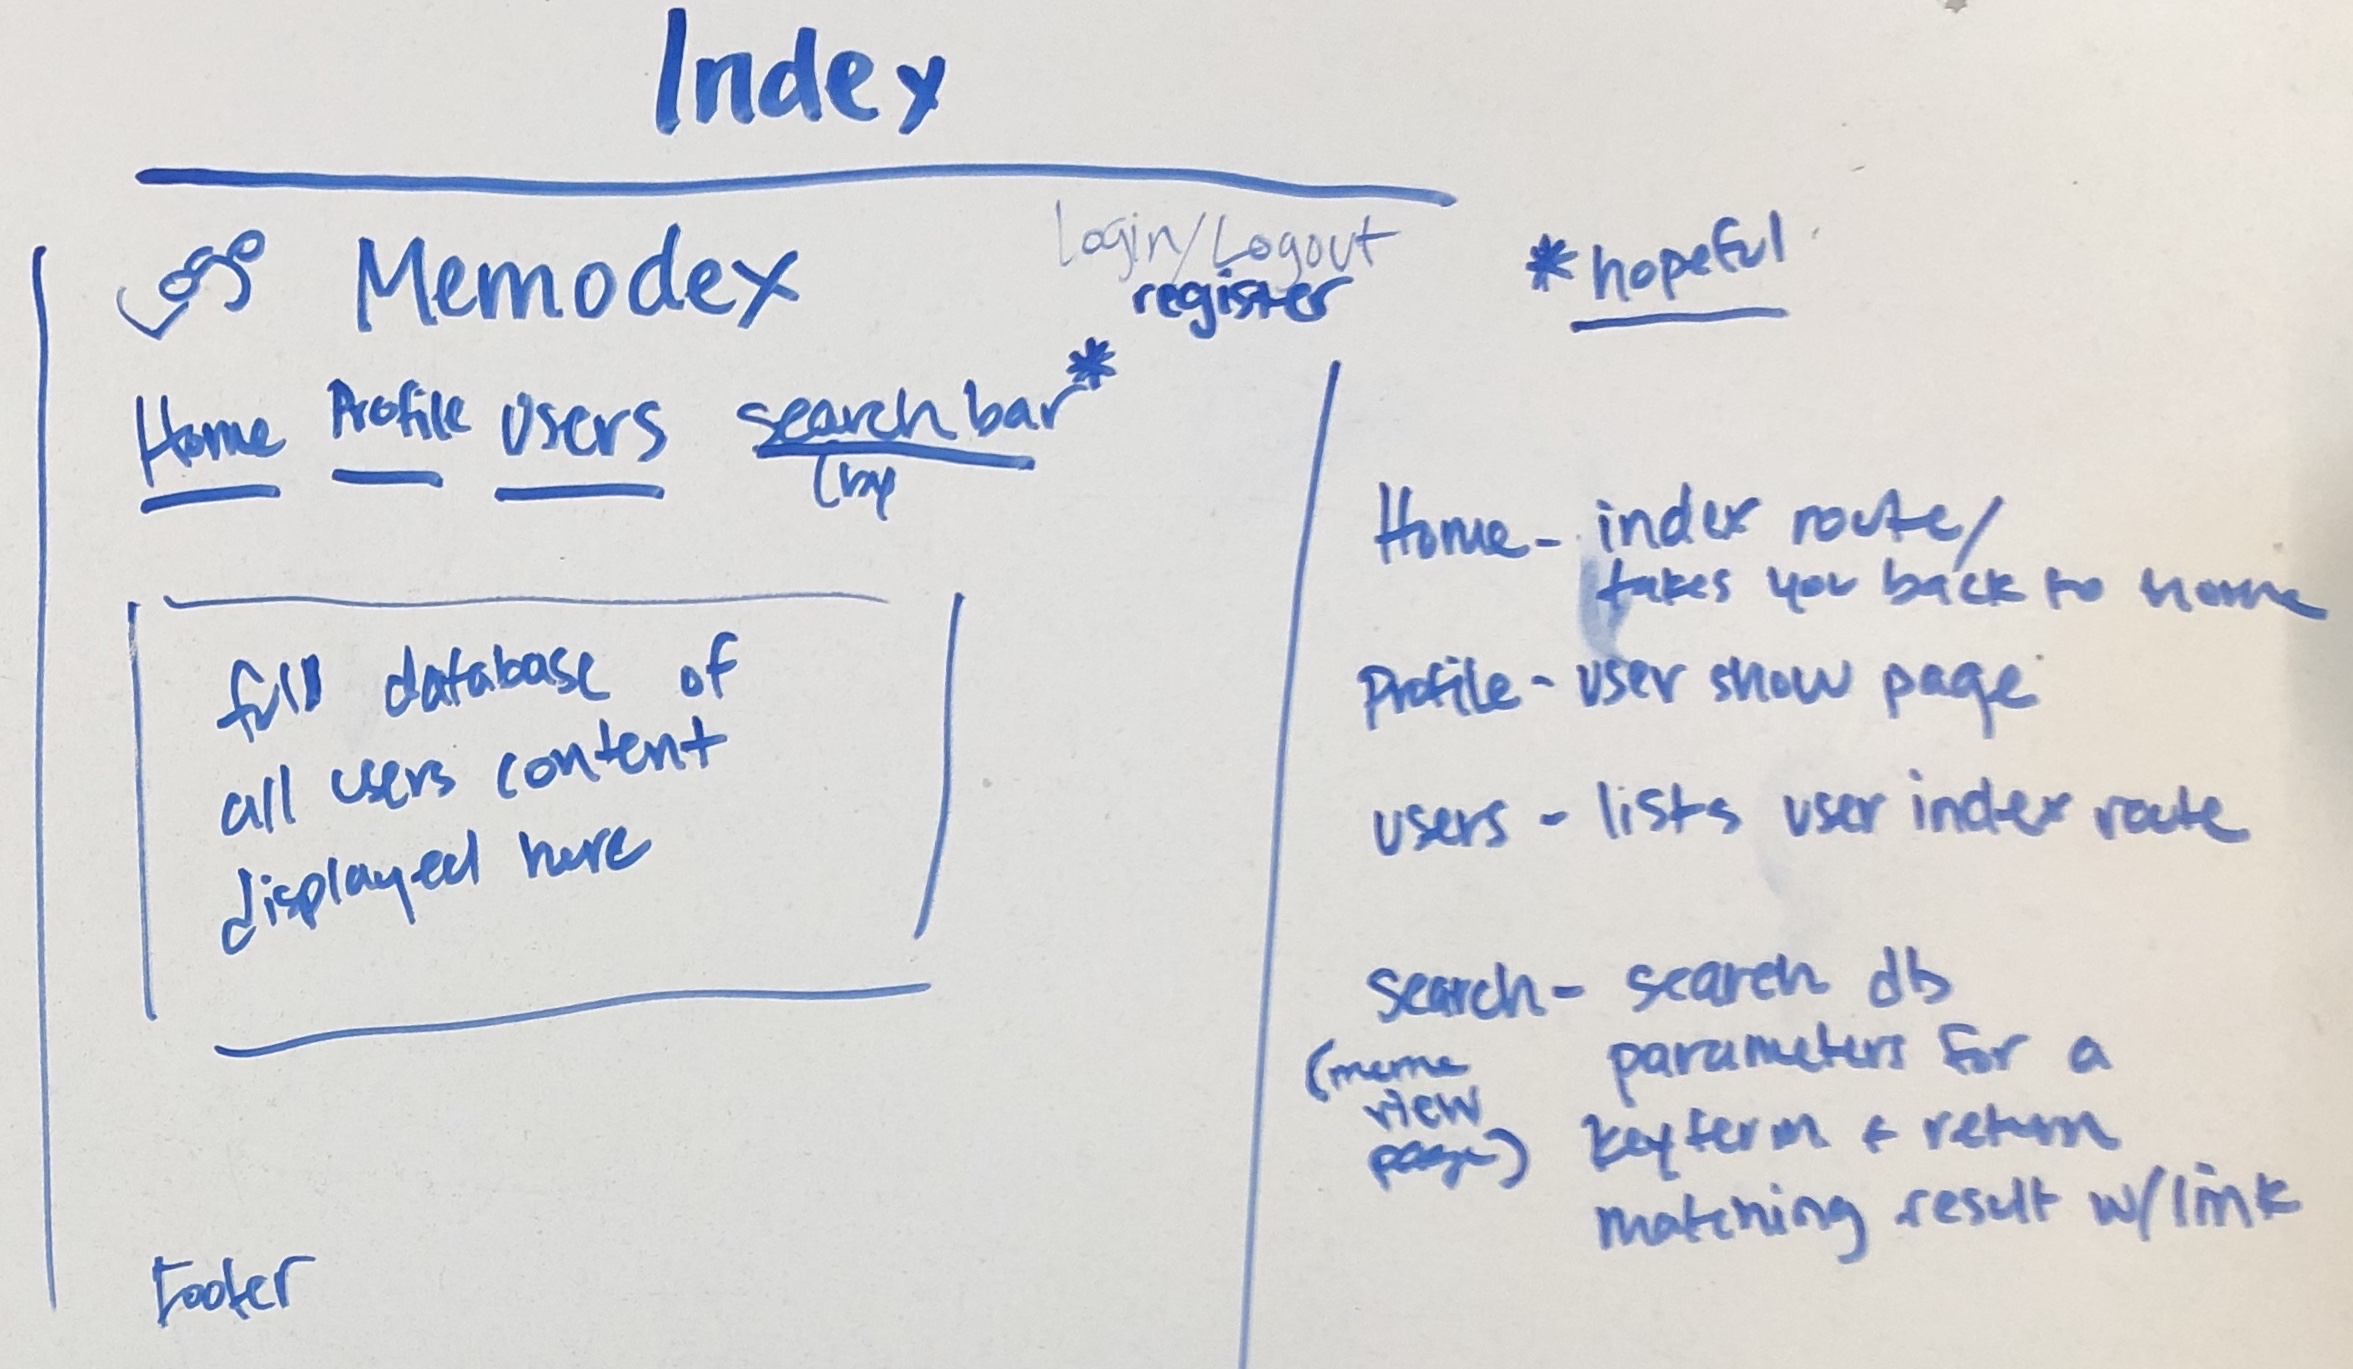 Index
Logo Memodex
Login/Logout
register
*hopeful
Home Profile Users search bar*
(by
full database of
all users content
displayed here
Footer
Home - index route/
takes you back to home
Profile - user show page
users - lists user index route
search - search db
(meme view page)
parameters for a
keyterm + return
matching result w/link